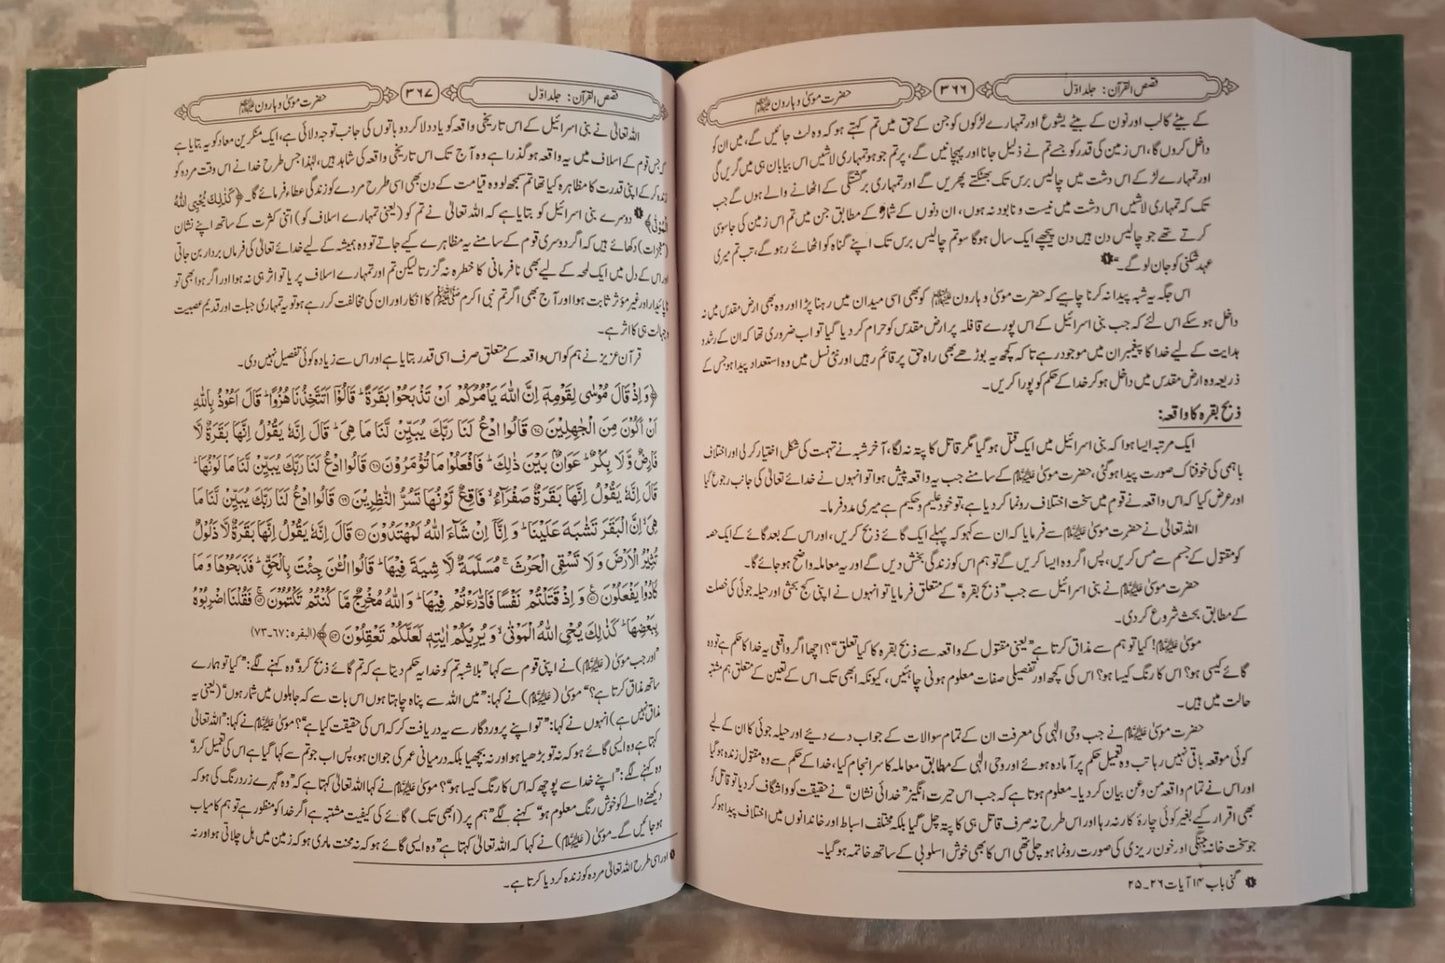 قصص القرآن: جلد اوّل
۳۶۶
حضرت موسیٰ و ہارون علیہما السلام
کے بیٹے کالب اور نون کے بیٹے یشوع اور تمہارے لڑکوں کو جن کے حق میں تم کہتے ہو کہ وہ لٹ جائیں گے، میں ان کو
داخل کروں گا، اس زمین کی قدر کو جسے تم نے ذلیل جانا اور پہچانیں گے، پر تم جو ہو تمہاری لاشیں اس بیابان ہی میں گریں گی
اور تمہارے لڑکے اس دشت میں چالیس برس تک بھٹکتے پھریں گے اور تمہاری برگشتگی کے اٹھانے والے ہوں گے جب
تک کہ تمہاری لاشیں اس دشت میں نیست و نابود نہ ہوں، ان دنوں کے شمار کے مطابق جن میں تم اس زمین کی جاسوسی
کرتے تھے جو چالیس دن ہیں دن پیچھے ایک سال ہوگا سو تم چالیس برس تک اپنے گناہ کو اٹھائے رہو گے، تب تم میری
عہد شکنی کو جان لو گے۔“ ❶
اس جگہ یہ شبہ پیدا نہ کرنا چاہیے کہ حضرت موسیٰ و ہارون علیہما السلام کو بھی اسی میدان میں رہنا پڑا اور وہ بھی ارض مقدس میں نہ
داخل ہو سکے اس لئے کہ جب بنی اسرائیل کے اس پورے قافلہ پر ارض مقدس کو حرام کر دیا گیا تو اب ضروری تھا کہ ان کے رشد و
ہدایت کے لیے خدا کا پیغمبر ان میں موجود رہے تا کہ کچھ یہ بوڑھے بھی راہ حق پر قائم رہیں اور نئی نسل میں وہ استعداد پیدا ہو جس کے
ذریعہ وہ ارض مقدس میں داخل ہو کر خدا کے حکم کو پورا کریں۔
ذبح بقرہ کا واقعہ:
ایک مرتبہ ایسا ہوا کہ بنی اسرائیل میں ایک قتل ہو گیا مگر قاتل کا پتہ نہ لگا، آخر شبہ نے تہمت کی شکل اختیار کر لی اور اختلاف
باہمی کی خوفناک صورت پیدا ہوگئی، حضرت موسیٰ علیہ السلام کے سامنے جب یہ واقعہ پیش ہوا تو انہوں نے خدائے تعالیٰ کی جانب رجوع کیا
اور عرض کیا کہ اس واقعہ نے قوم میں سخت اختلاف رونما کر دیا ہے، تو خود علیم و حکیم ہے میری مدد فرما۔
اللہ تعالیٰ نے حضرت موسیٰ علیہ السلام سے فرمایا کہ ان سے کہو کہ پہلے ایک گائے ذبح کریں، اور اس کے بعد گائے کے ایک حصہ
کو مقتول کے جسم سے مس کریں، پس اگر وہ ایسا کریں گے تو ہم اس کو زندگی بخش دیں گے اور یہ معاملہ واضح ہو جائے گا۔
حضرت موسیٰ علیہ السلام نے بنی اسرائیل سے جب ”ذبح بقرہ“ کے متعلق فرمایا تو انہوں نے اپنی کج بحثی اور حیلہ جوئی کی خصلت
کے مطابق بحث شروع کر دی۔
موسیٰ علیہ السلام! کیا تو ہم سے مذاق کرتا ہے ”یعنی مقتول کے واقعہ سے ذبح بقرہ کا کیا تعلق“؟ اچھا اگر واقعی یہ خدا کا حکم ہے تو وہ
گائے کیسی ہو؟ اس کا رنگ کیسا ہو؟ اس کی کچھ اور تفصیلی صفات معلوم ہونی چاہئیں، کیونکہ ابھی تک اس کے تعین کے متعلق ہم مشتبہ
حالت میں ہیں۔
حضرت موسیٰ علیہ السلام نے جب وحی الٰہی کی معرفت ان کے تمام سوالات کے جواب دے دیے اور حیلہ جوئی کا ان کے لیے
کوئی موقعہ باقی نہیں رہا تب وہ تعمیل حکم پر آمادہ ہوئے اور وحی الٰہی کے مطابق معاملہ کا سرانجام کیا، خدا کے حکم سے وہ مقتول زندہ ہوگیا
اور اس نے تمام واقعہ من و عن بیان کر دیا۔ معلوم ہوتا ہے کہ جب اس حیرت انگیز ”خدائی نشان“ نے حقیقت کو واشگاف کر دیا تو قاتل کو
بھی اقرار کیے بغیر کوئی چارۂ کار نہ رہا اور اس طرح نہ صرف قاتل ہی کا پتہ چل گیا بلکہ مختلف اسباط اور خاندانوں میں اختلاف پیدا ہو کر
جو سخت خانہ جنگی اور خون ریزی کی صورت رونما ہو چلی تھی اس کا بھی خوش اسلوبی کے ساتھ خاتمہ ہو گیا۔
❶ گنتی باب ۱۴ آیات ۲۶۔۲۵
قصص القرآن: جلد اوّل
۳۶۷
حضرت موسیٰ و ہارون علیہما السلام
اللہ تعالیٰ نے بنی اسرائیل کے اس تاریخی واقعہ کو یاد دلا کر دو باتوں کی جانب توجہ دلائی ہے، ایک منکرین معاد کو یہ بتایا ہے
کہ جس قوم کے اسلاف میں یہ واقعہ ہو گذرا ہے وہ آج تک اس تاریخی واقعہ کی شاہد ہیں، لہٰذا جس طرح خدا نے اس وقت مردہ کو
زندہ کر کے اپنی قدرت کا مظاہرہ کیا تھا تم سمجھ لو وہ قیامت کے دن بھی اسی طرح مردے کو زندگی عطاء فرمائے گا۔ ﴿كَذٰلِكَ يُحْيِي اللّٰهُ
الْمَوْتٰى﴾ ❶ دوسرے بنی اسرائیل کو بتایا ہے کہ اللہ تعالیٰ نے تم کو (یعنی تمہارے اسلاف کو) اتنی کثرت کے ساتھ اپنے نشان
(معجزات) دکھائے ہیں کہ اگر دوسری قوم کے سامنے یہ مظاہرے کیے جاتے تو وہ ہمیشہ کے لیے خدائے تعالیٰ کی فرماں بردار بن جاتی
اور اس کے دل میں ایک لمحہ کے لیے بھی نافرمانی کا خطرہ نہ گزرتا لیکن تم اور تمہارے اسلاف پر یا تو اثر ہی نہ ہوا اور اگر ہوا بھی تو
ناپائیدار اور غیر مؤثر ثابت ہوا اور آج بھی اگر تم نبی اکرم ﷺ کا انکار اور ان کی مخالفت کر رہے ہو تو یہ تمہاری جبلت اور قدیم عصبیت
و جہالت ہی کا اثر ہے۔
قرآن عزیز نے ہم کو اس واقعہ کے متعلق صرف اسی قدر بتایا ہے اور اس سے زیادہ کوئی تفصیل نہیں دی۔
﴿وَ اِذْ قَالَ مُوْسٰى لِقَوْمِهٖۤ اِنَّ اللّٰهَ يَاْمُرُكُمْ اَنْ تَذْبَحُوْا بَقَرَةً ؕ قَالُوْۤا اَتَتَّخِذُنَا هُزُوًا ؕ قَالَ اَعُوْذُ بِاللّٰهِ
اَنْ اَكُوْنَ مِنَ الْجٰهِلِيْنَ۝ قَالُوا ادْعُ لَنَا رَبَّكَ يُبَيِّنْ لَّنَا مَا هِيَ ؕ قَالَ اِنَّهٗ يَقُوْلُ اِنَّهَا بَقَرَةٌ لَّا
فَارِضٌ وَّ لَا بِكْرٌ ؕ عَوَانٌۢ بَيْنَ ذٰلِكَ ؕ فَافْعَلُوْا مَا تُؤْمَرُوْنَ۝ قَالُوا ادْعُ لَنَا رَبَّكَ يُبَيِّنْ لَّنَا مَا لَوْنُهَا ؕ
قَالَ اِنَّهٗ يَقُوْلُ اِنَّهَا بَقَرَةٌ صَفْرَآءُ ۙ فَاقِعٌ لَّوْنُهَا تَسُرُّ النّٰظِرِيْنَ۝ قَالُوا ادْعُ لَنَا رَبَّكَ يُبَيِّنْ لَّنَا مَا
هِيَ ۙ اِنَّ الْبَقَرَ تَشٰبَهَ عَلَيْنَا ؕ وَ اِنَّاۤ اِنْ شَآءَ اللّٰهُ لَمُهْتَدُوْنَ۝ قَالَ اِنَّهٗ يَقُوْلُ اِنَّهَا بَقَرَةٌ لَّا ذَلُوْلٌ
تُثِيْرُ الْاَرْضَ وَ لَا تَسْقِي الْحَرْثَ ۚ مُسَلَّمَةٌ لَّا شِيَةَ فِيْهَا ؕ قَالُوا الْـٰٔنَ جِئْتَ بِالْحَقِّ ؕ فَذَبَحُوْهَا وَ مَا
كَادُوْا يَفْعَلُوْنَ۝ وَ اِذْ قَتَلْتُمْ نَفْسًا فَادّٰرَءْتُمْ فِيْهَا ؕ وَ اللّٰهُ مُخْرِجٌ مَّا كُنْتُمْ تَكْتُمُوْنَ۝ فَقُلْنَا اضْرِبُوْهُ
بِبَعْضِهَا ؕ كَذٰلِكَ يُحْيِ اللّٰهُ الْمَوْتٰى ۙ وَ يُرِيْكُمْ اٰيٰتِهٖ لَعَلَّكُمْ تَعْقِلُوْنَ۝﴾ (البقرہ: ۶۷۔۷۳)
”اور جب موسیٰ (علیہ السلام) نے اپنی قوم سے کہا ”بلاشبہ تم کو خدا یہ حکم دیتا ہے کہ تم گائے ذبح کرو“ وہ کہنے لگے: ”کیا تو ہمارے
ساتھ مذاق کرتا ہے؟“ موسیٰ (علیہ السلام) نے کہا: ”میں اللہ سے پناہ چاہتا ہوں اس بات سے کہ جاہلوں میں شمار ہوں“ (یعنی یہ
مذاق نہیں ہے) انہوں نے کہا: ”تو اپنے پروردگار سے یہ دریافت کر کہ اس کی حقیقت کیا ہے“؟ موسیٰ علیہ السلام نے کہا: ”اللہ تعالیٰ
کہتا ہے وہ ایسی گائے ہو کہ نہ تو بڑھیا ہو اور نہ بچھیا بلکہ درمیانی عمر کی جوان ہو، پس اب جو تم سے کہا گیا ہے اس کی تعمیل کرو“
وہ کہنے لگے: ”اپنے خدا سے پوچھ کہ اس کا رنگ کیسا ہو“؟ موسیٰ علیہ السلام نے کہا اللہ تعالیٰ کہتا ہے کہ ”وہ گہرے زرد رنگ کی ہو کہ
دیکھنے والے کو خوش رنگ معلوم ہو“ کہنے لگے ”ہم پر (ابھی تک) گائے کی کیفیت مشتبہ ہے اگر خدا کو منظور ہے تو ہم کامیاب
ہو جائیں گے۔ موسیٰ (علیہ السلام) نے کہا کہ اللہ تعالیٰ کہتا ہے ”وہ ایسی گائے ہو کہ نہ محنت ماری ہو کہ زمین میں ہل چلاتی ہو اور نہ
❶ اور اسی طرح اللہ تعالیٰ مردہ کو زندہ کر دیا کرتا ہے۔